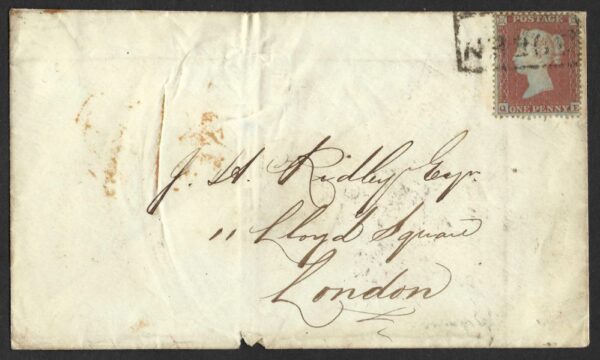 POSTAGE
ONE PENNY
J. H. Ridley Esqr.
11 Lloyd Square
London